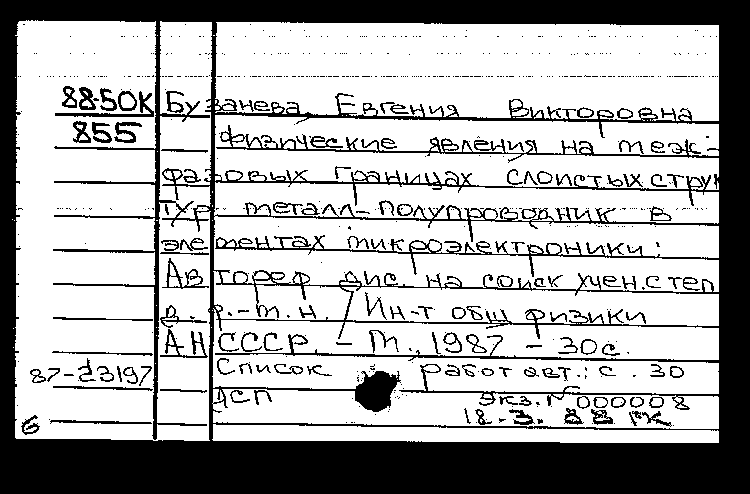 88-50К Бузанева, Евгения Викторовна
855 Физические явления на меж-
фазовых границах слоистых струк
тур металл-полупроводник в
элементах микроэлектроники:
Автореф дис. на соиск учен.степ
д. ф.-м.н. / Ин-т общ физики
АН СССР. – М., 1987 – 30с.
Список работ авт.: с. 30
87-23197
ДСП Экз. № 000008
18.3.88 РК
6